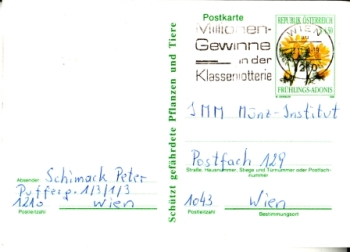 Postkarte
Millionen-
Gewinne
in der
Klassenlotterie
REPUBLIK ÖSTERREICH
WIEN
FRÜHLINGS-ADONIS
Schützt gefährdete Pflanzen und Tiere
IMM Münz-Institut
Postfach 129
Straße, Hausnummer, Stiege und Türnummer oder Postfach-
nummer
1043 Wien
Postleitzahl Bestimmungsort
Absender: Schimack Peter
1/3/1/3
1210 Wien
Postleitzahl